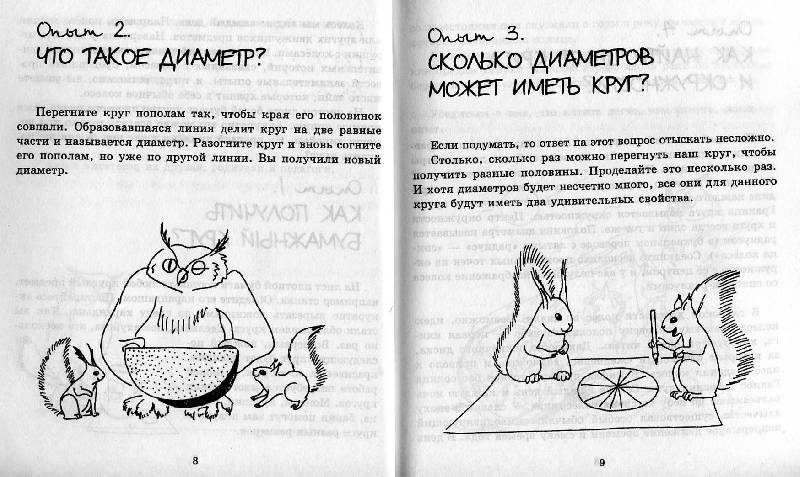 Опыт 2.
ЧТО ТАКОЕ ДИАМЕТР?
Перегните круг пополам так, чтобы края его половинок
совпали. Образовавшаяся линия делит круг на две равные
части и называется диаметр. Разогните круг и вновь согните
его пополам, но уже по другой линии. Вы получили новый
диаметр.
8
Опыт 3.
СКОЛЬКО ДИАМЕТРОВ
МОЖЕТ ИМЕТЬ КРУГ?
Если подумать, то ответ на этот вопрос отыскать несложно.
Столько, сколько раз можно перегнуть наш круг, чтобы
получить разные половины. Проделайте это несколько раз.
И хотя диаметров будет несчетно много, все они для данного
круга будут иметь два удивительных свойства.
9